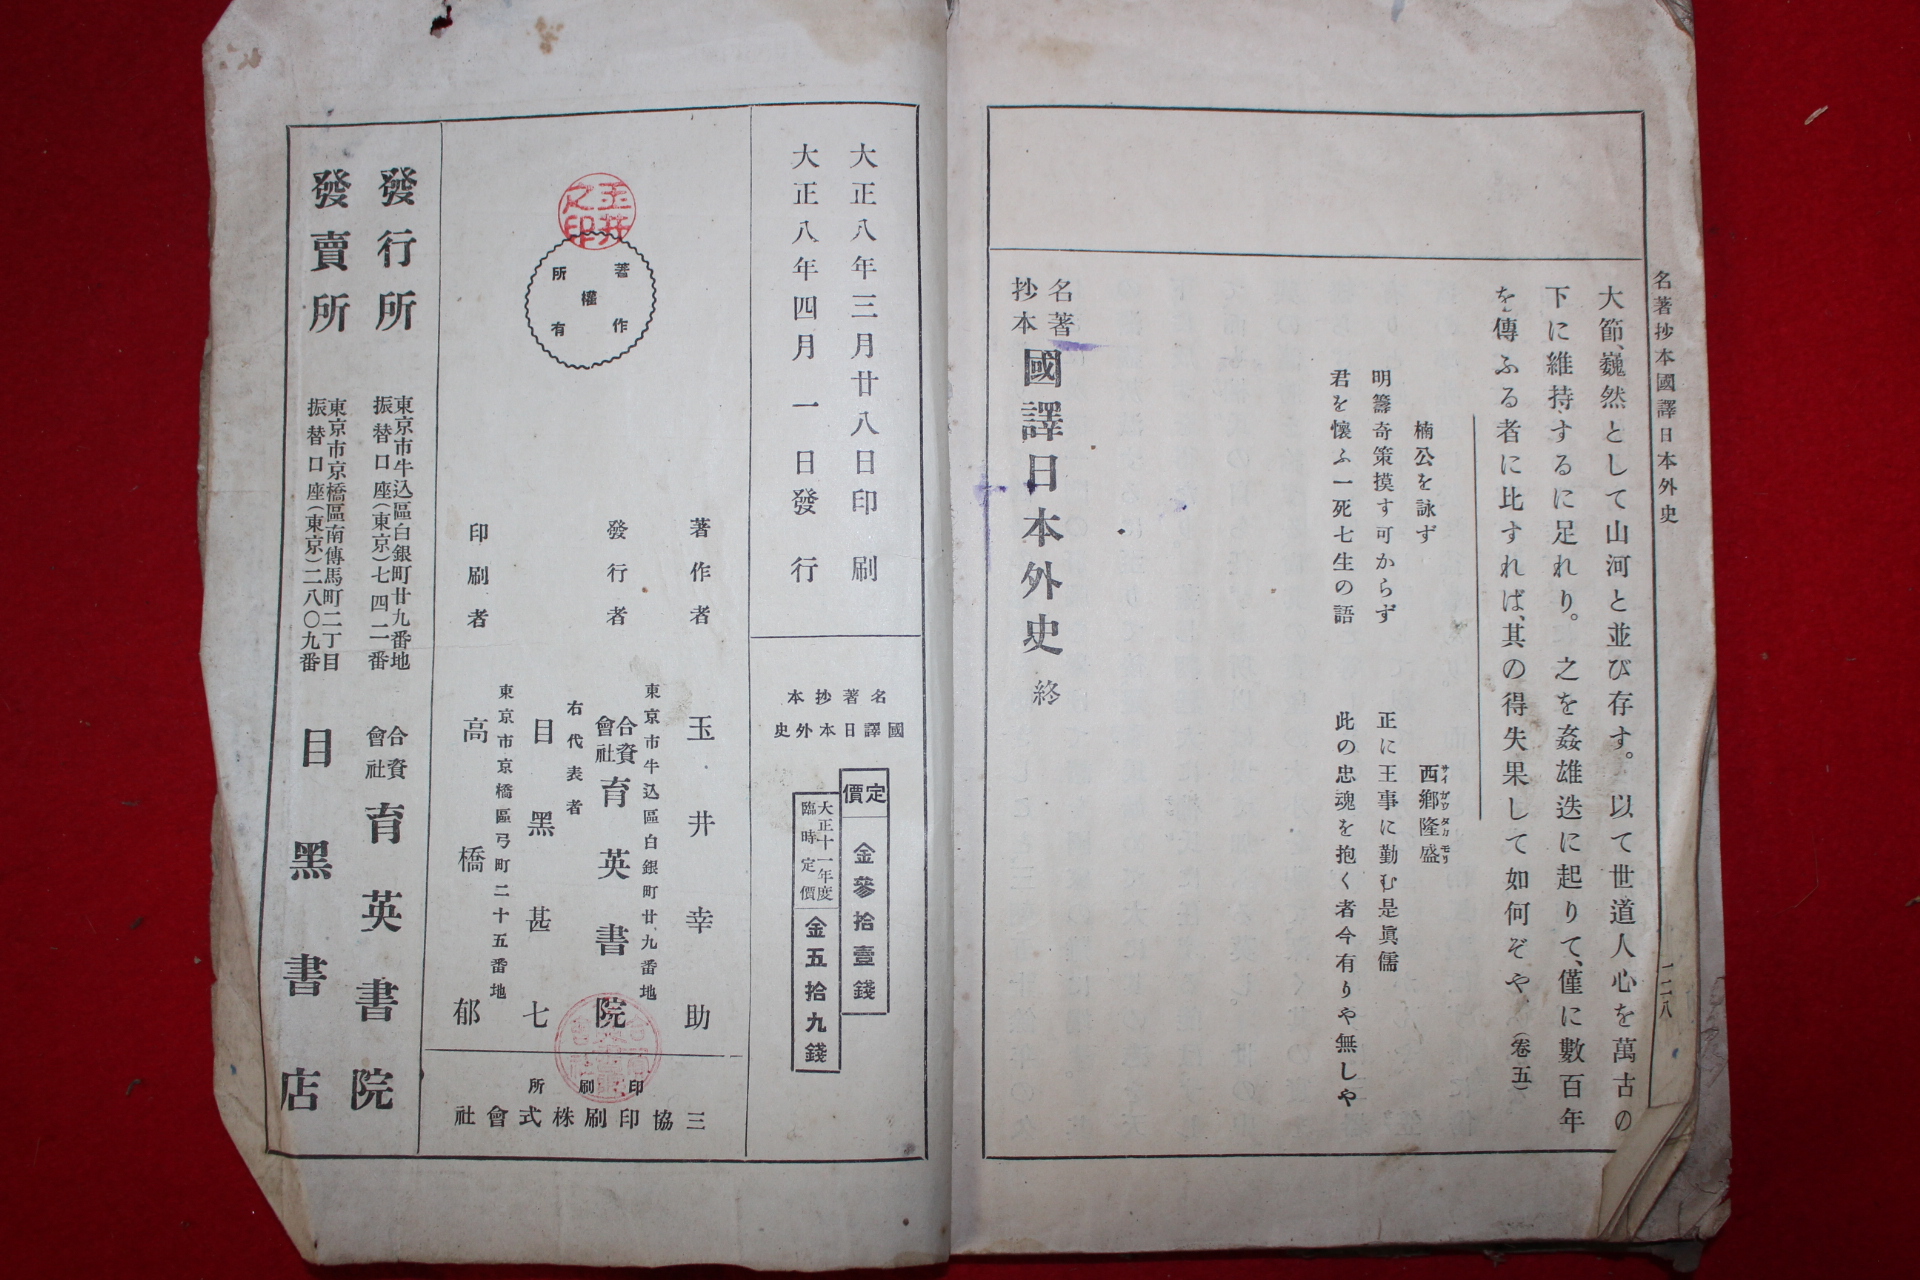 名著抄本國譯日本外史
一二八
大節、巍然として山河と並び存す。以て世道人心を萬古の
下に維持するに足れり。之を姦雄迭に起りて、僅に數百年
を傳ふる者に比すれば、其の得失果して如何ぞや。(卷五)
楠公を詠ず
西鄕隆盛
サイガウタカモリ
明籌奇策摸す可からず
正に王事に勤む是眞儒
君を懷ふ一死七生の語
此の忠魂を抱く者今有りや無しや
名著
抄本
國譯日本外史
終
大正八年三月廿八日印刷
大正八年四月一日發行
名著抄本
國譯日本外史
定價
金參拾壹錢
大正十一年度
臨時定價
金五拾九錢
玉井之印
著作
權
所有
著作者
玉井幸助
發行者
東京市牛込區白銀町廿九番地
合資
會社
育英書院
右代表者
目黑甚七
印刷者
東京市京橋區弓町二十五番地
高橋郁
印刷所
三協印刷株式會社
發行所
東京市牛込區白銀町廿九番地
振替口座(東京)七四二番
合資
會社
育英書院
發賣所
東京市京橋區南傳馬町二丁目
振替口座(東京)二八〇九番
目黑書店